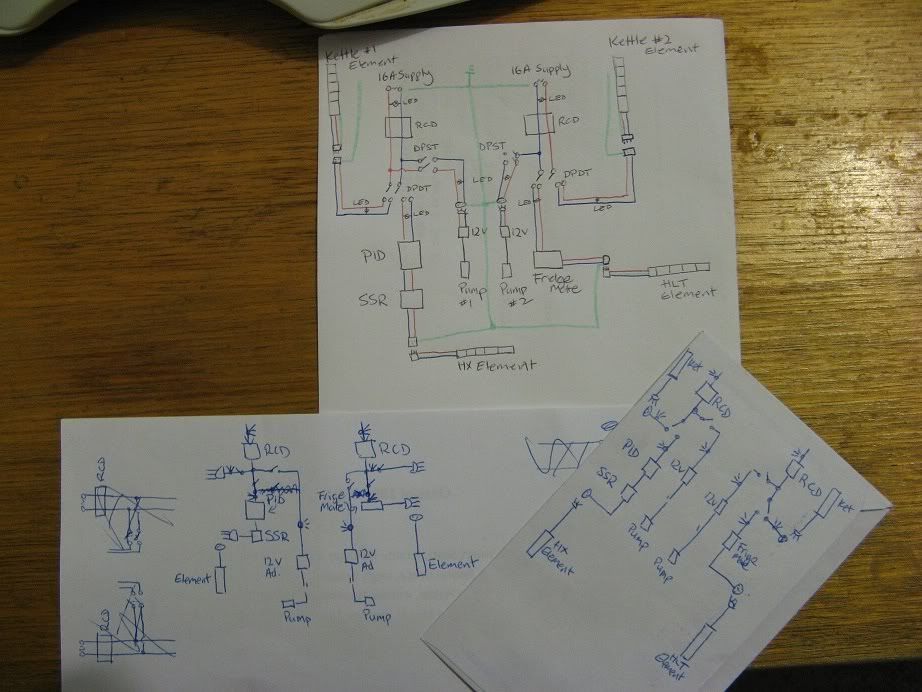 Kettle #1
Element
16A Supply
LED
RCD
DPST
DPDT
LED
LED
LED
PID
SSR
12V
Pump
#1
HX Element
Kettle #2
Element
16A Supply
LED
RCD
DPST
DPDT
LED
LED
12V
Pump
#2
Fridge
Mate
HLT
Element
RCD
RCD
RCD
PID
SSR
Element
12V
Ad.
Pump
RCD
Frige
Mate
12V
Ad
Element
Pump
Ket
RCD
PID
SSR
12V
HX
Element
Pump
RCD
Ket
12V
Frige
mate
Pump
HLT
Element